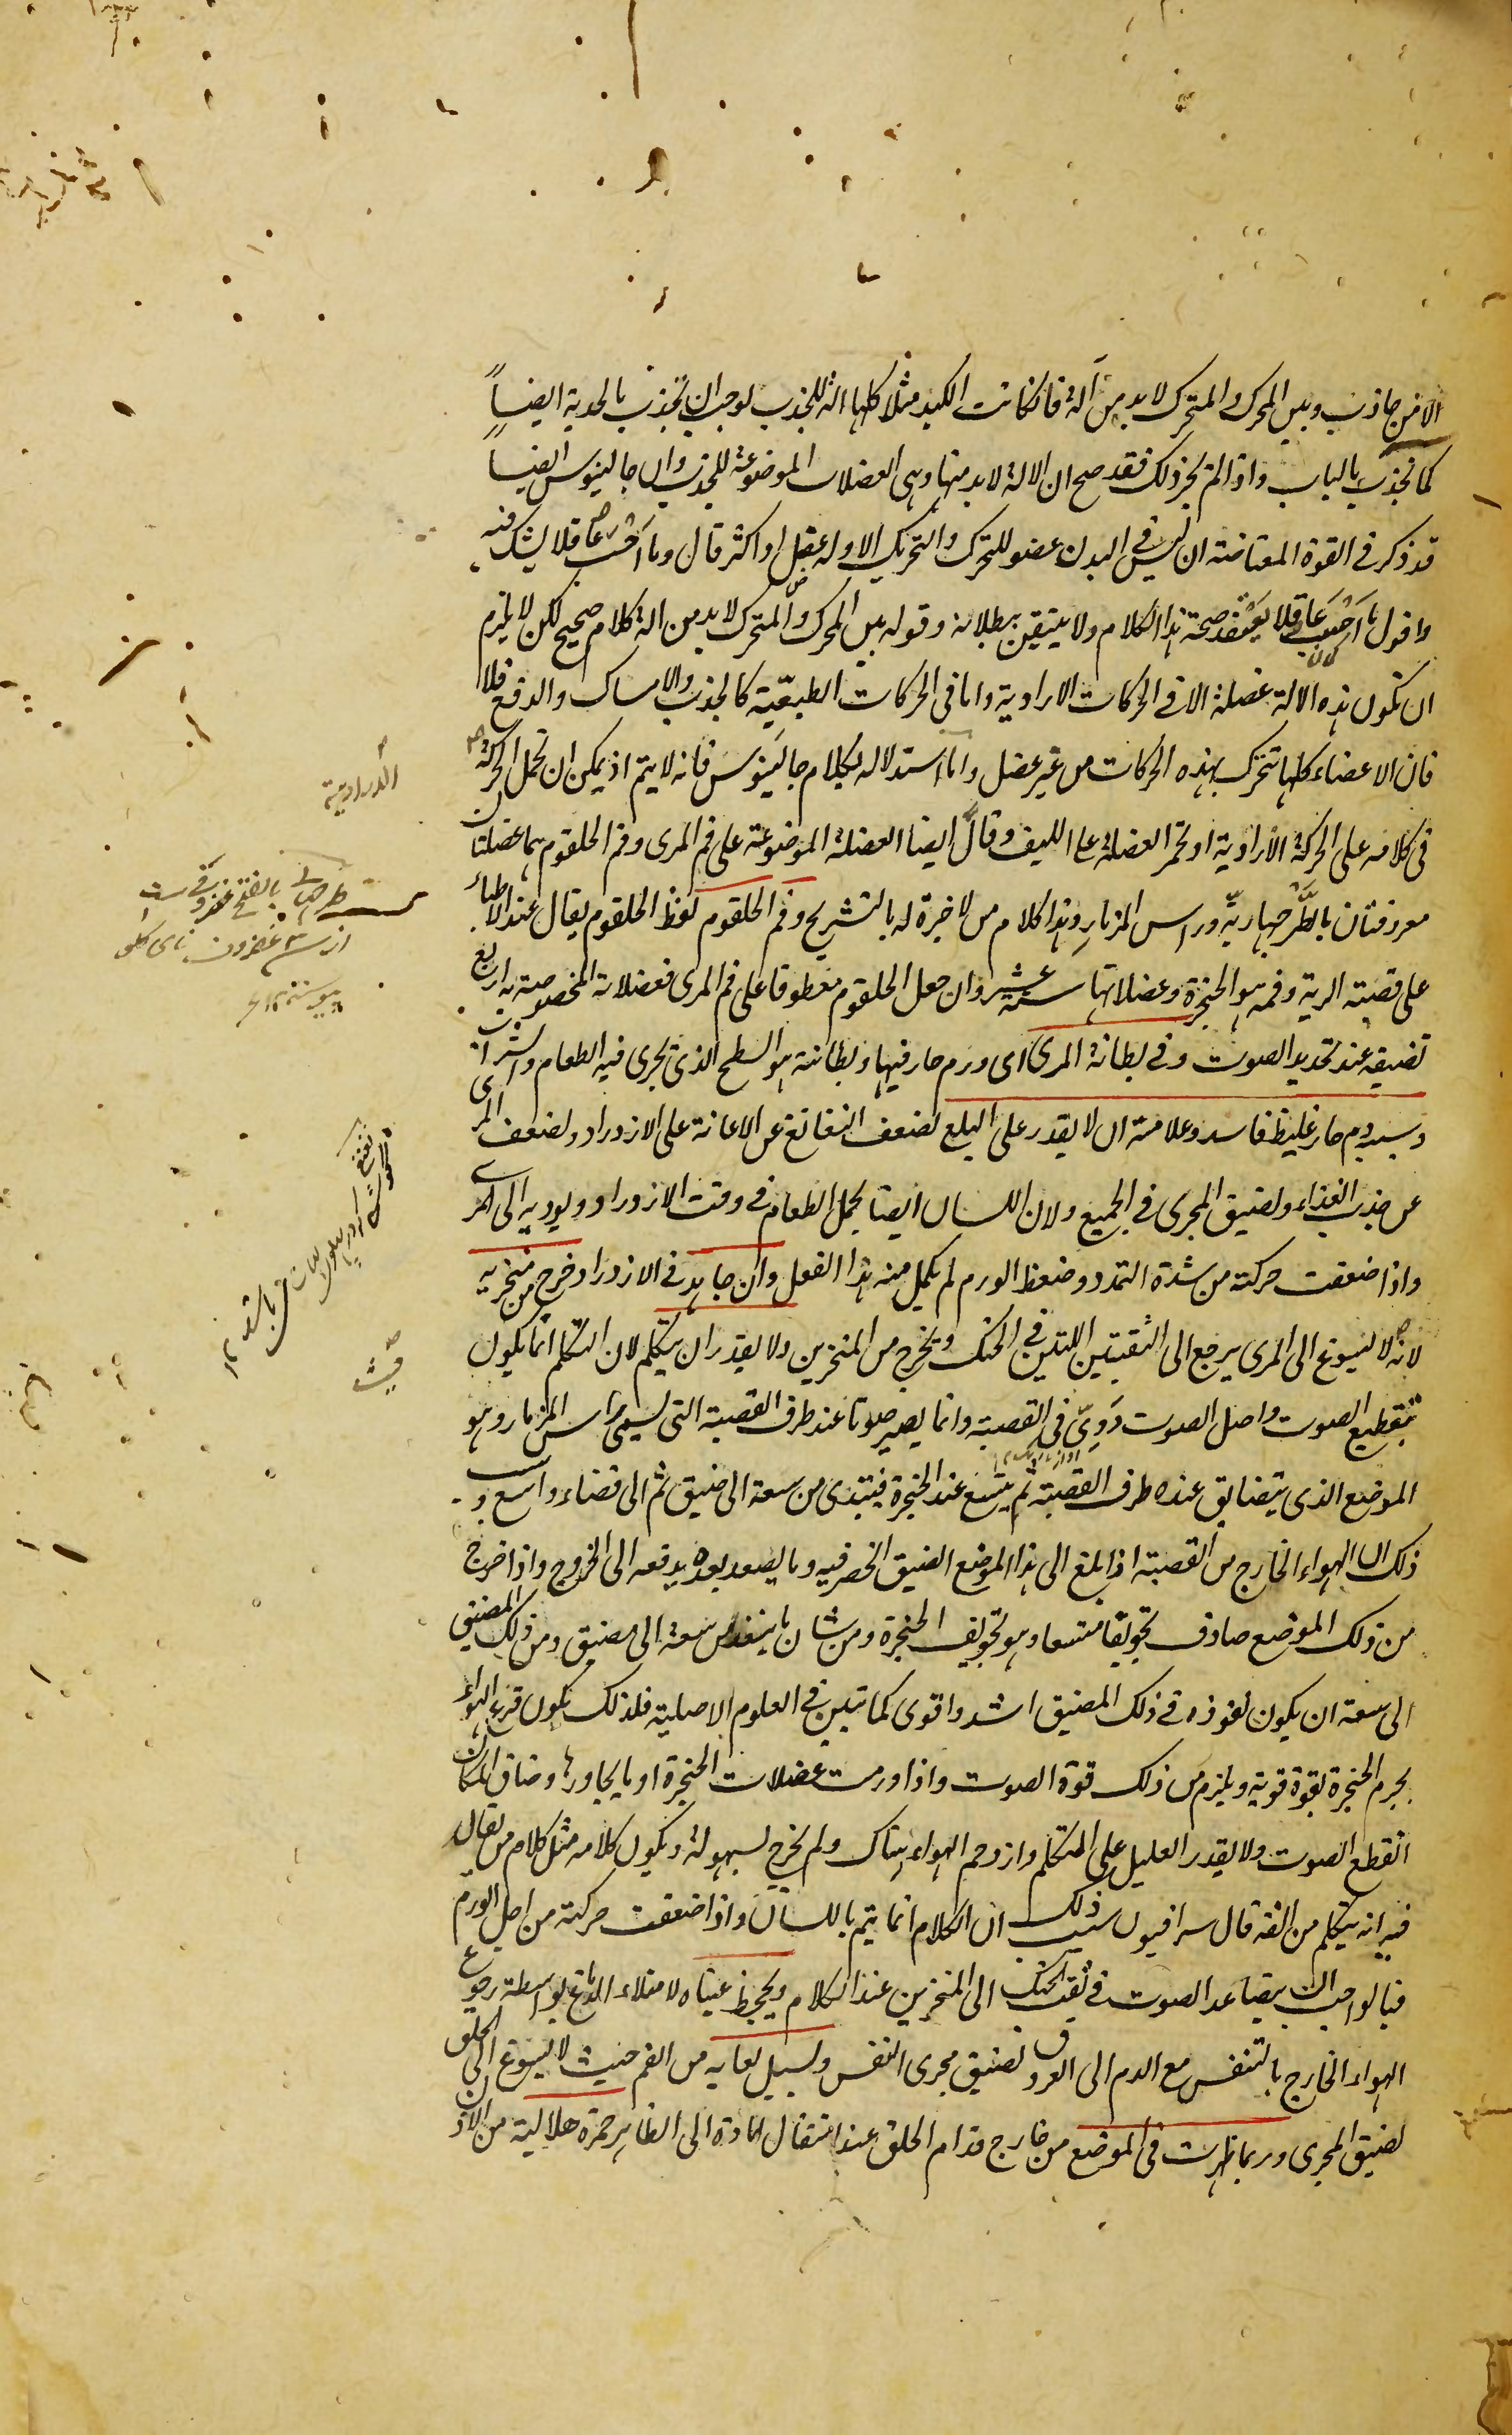 الا من جاذب وبين المحرك والمتحرك لا بد من آلة فان كانت الكبد مثلا كلها الة للجذب لوجب ان تجذب بالحدبة ايضاً
كما تجذب بالباب واذا لم يجز ذلك فقد صح ان الالة لا بد منها وهى العضلات الموضوعة للجذب وان جالينوس ايضاً
قد ذكر فى القوة المعتاضة ان ليس فى البدن عضو للتحرك والتحريك الا وله عضل او اكثر قال وما احسب عاقلا يشك فيه
واقول ما احسب عاقلا يعتقد صحة هذا الكلام ولا يتيقن ببطلانه وقوله بين المحرك والمتحرك لا بد من الة كلام صحيح لكن لا يلزم
ان تكون هذه الالة عضلة الا فى الحركات الارادية واما فى الحركات الطبيعية كالجذب والامساك والدفع فلا
فان الاعضاء كلها تتحرك بهذه الحركات من غير عضل واما استدلاله بكلام جالينوس فانه لا يتم اذ يمكن ان تحمل الحركة
فى كلامه على الحركة الارادية او تحمل العضلة على الليف وقال ايضا العضلة الموضوعة على فم المرى وفم الحلقوم هما عضلتان
معروفتان بالطرجهارية وراس المزمار وهذا كلام من لا خبرة له بالتشريح وفم الحلقوم لفظ الحلقوم يقال عند الاطباء
على قصبة الرية وفمه هو الحنجرة وعضلاتها ستة عشر وان جعل الحلقوم معطوفا على فم المرى فعضلاته المخصوصة به اربع
تضيقه عند تحديد الصوت وفى بطانة المرى اى ورم حار فيها وبطانته هو السطح الذى يجرى فيه الطعام والشراب
وسببه دم حار غليظ فاسد وعلامته ان لا يقدر على البلع لضعف النغانغ عن الاعانة على الازدراد ولضعف المرى
عن جذب الغذاء ولضيق المجرى فى الجميع ولان اللسان ايضا يحمل الطعام فى وقت الازدراد ويوديه الى المرى
واذا ضعفت حركته من شدة التمدد وضغط الورم لم يكمل منه هذا الفعل وان جاهد فى الازدراد خرج من منخريه
لانه لا ينسوغ الى المرى يرجع الى الثقبتين اللتين فى الحنك ويخرج من المنخرين ولا يقدر ان يتكلم لان التكلم انما يكون
بتقطيع الصوت واصل الصوت دَوِىّ فى القصبة وانما يصير صوتا عند طرف القصبة التى يسمى راس المزمار وهو
الموضع الذى يتضايق عنده طرف القصبة ثم يتسع عند الحنجرة فيبتدى من سعة الى ضيق ثم الى فضاء واسع و
ذلك ان الهواء الخارج من القصبة اذا بلغ الى هذا الموضع الضيق انحصر فيه وما يصعد بعده يدفعه الى الخروج واذا خرج
من ذلك الموضع صادف تجويفا متسعا وهو تجويف الحنجرة ومن شان ما ينفذ من سعة الى مضيق ومن ذلك المضيق
الى سعة ان يكون نفوذه فى ذلك المضيق اشد واقوى كما تبين فى العلوم الاصلية فلذلك يكون قرع الهواء
بجرم الحنجرة بقوة قوية ويلزم من ذلك قوة الصوت واذا ورمت عضلات الحنجرة او ما يجاورها وضاق المكان
انقطع الصوت ولا يقدر العليل على التكلم وازدحم الهواء هناك ولم يخرج بسهولة ويكون كلامه مثل كلام من يقال
فيه انه يتكلم من انفه قال سرافيون سبب ذلك ان الكلام انما يتم باللسان واذا ضعفت حركته من اجل الورم
فبالواجب ان يتصاعد الصوت فى ثقب الحنك الى المنخرين عند الكلام ويجحظ عيناه لامتلاء الدماغ بواسطة رجوع
الهواء الخارج بالتنفس مع الدم الى العروق لضيق مجرى النفس ويسيل لعابه من الفم حيث لا ينسوغ الى الحلق
لضيق المجرى وربما ظهرت فى الموضع من خارج قدام الحلق عند انتقال المادة الى الظاهر حمرة هلالية من الاذن